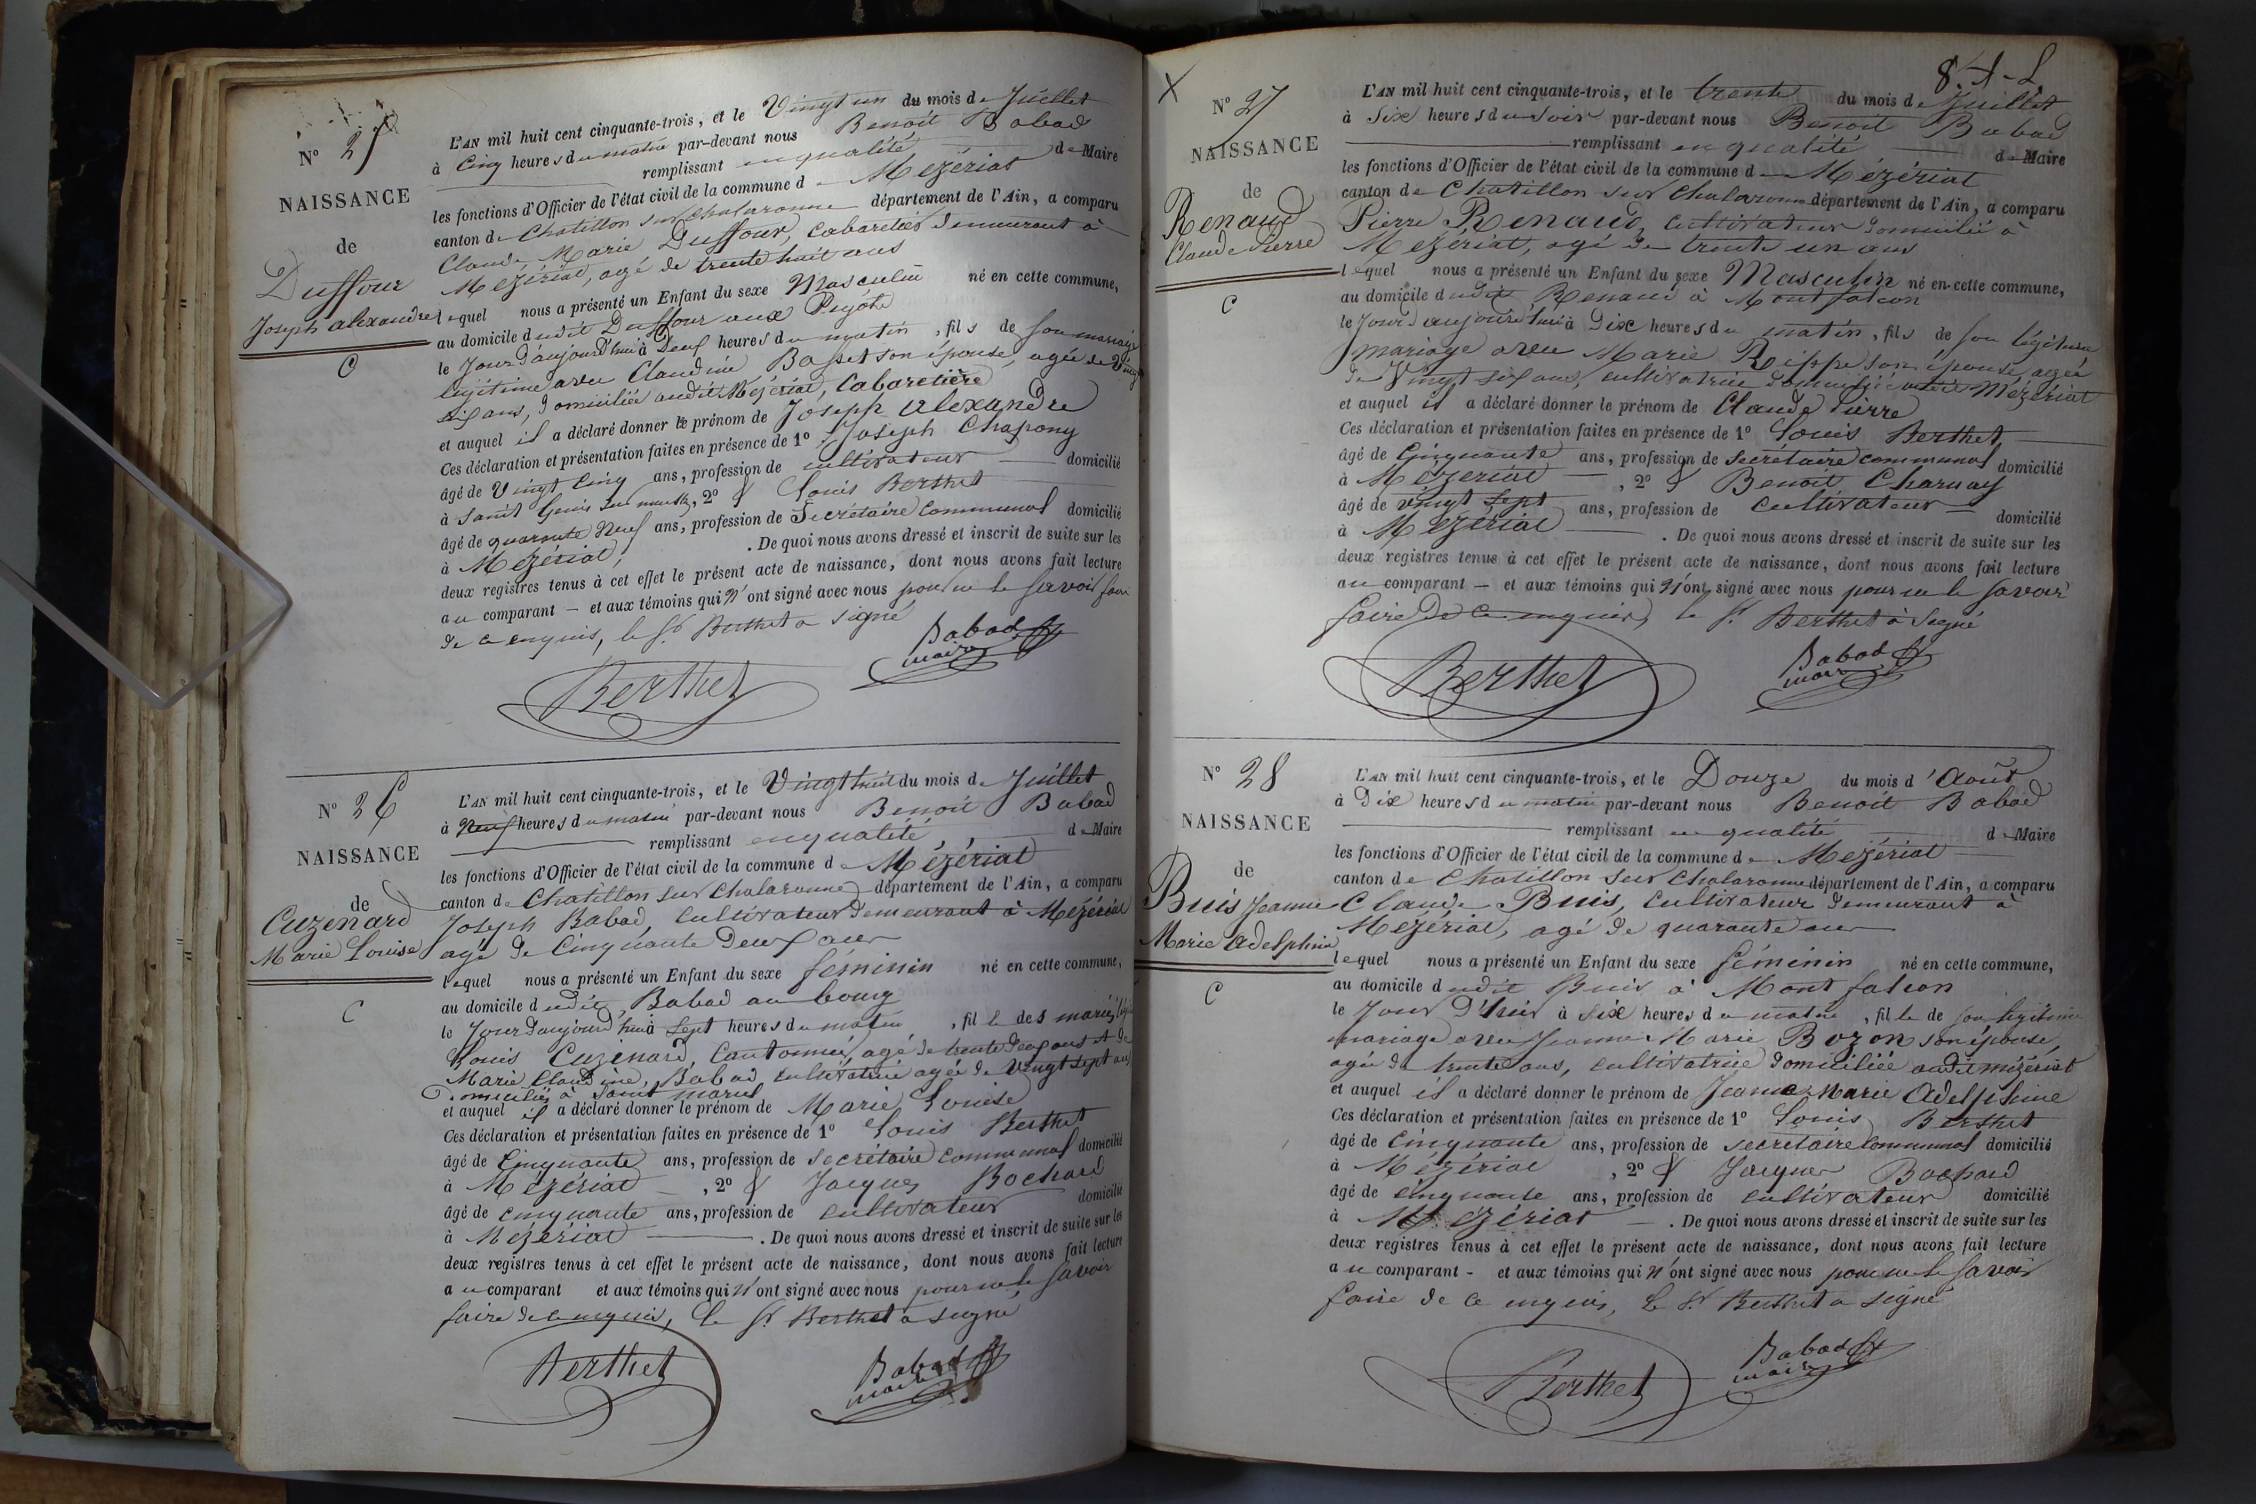 N° 25
NAISSANCE
de
Duffour
Joseph alexandre
C
L'AN mil huit cent cinquante-trois, et le Vingt un du mois de Juillet
à Cinq heures du matin par-devant nous Benoit Babad
remplissant en qualité de Maire
les fonctions d'Officier de l'état civil de la commune de Mézériat
canton de Chatillon sur chalaronne département de l'Ain, a comparu
Claude Marie Duffour, Cabaretier demeurant à
Mézériat, agé de trente huit ans
lequel nous a présenté un Enfant du sexe Masculin né en cette commune,
au domicile dudit Duffour aux
le Jour d'aujourd'hui à Deux heures du matin, fils de son mariage
légitime avec Claudine Basset son épouse, agée de Vingt
six ans, domiciliée audit Mézériat, Cabaretière
et auquel il a déclaré donner le prénom de Joseph alexandre
Ces déclaration et présentation faites en présence de 1° Joseph Chapony
âgé de Vingt Cinq ans, profession de cultivateur domicilié
à Saint Genis sur menthon, 2° & Louis Berthet
âgé de quarante Neuf ans, profession de Secrétaire Communal domicilié
à Mézériat, . De quoi nous avons dressé et inscrit de suite sur les
deux registres tenus à cet effet le présent acte de naissance, dont nous avons fait lecture
au comparant – et aux témoins qui N'ont signé avec nous pour ne le savoir faire
de ce enquis, le Sr Berthet a signé
Berthet
Babad
maire
N° 26
NAISSANCE
de
Cuzenard
Marie Louise
C
L'AN mil huit cent cinquante-trois, et le Vingt huit du mois de Juillet
à Neuf heures du matin par-devant nous Benoit Babad
remplissant en qualité de Maire
les fonctions d'Officier de l'état civil de la commune de Mézériat
canton de Chatillon sur chalaronne département de l'Ain, a comparu
Joseph Babad, Cultivateur demeurant à Mézériat
agé de Cinquante Deux ans
lequel nous a présenté un Enfant du sexe féminin né en cette commune,
au domicile dudit Babad au bourg
le Jour d'aujourd'hui à Sept heures du matin, fille des mariés
Louis Cuzenard, Cantonnier, agé de trente Deux ans et de
Marie Claudine Babad cultivatrice agée de Vingt Sept ans
Domiciliés à Saint
et auquel il a déclaré donner le prénom de Marie Louise
Ces déclaration et présentation faites en présence de 1° Louis Berthet
âgé de Cinquante ans, profession de Secrétaire communal domicilié
à Mézériat, 2° & Jacques Bochard
âgé de cinquante ans, profession de cultivateur domicilié
à Mézériat . De quoi nous avons dressé et inscrit de suite sur les
deux registres tenus à cet effet le présent acte de naissance, dont nous avons fait lecture
au comparant et aux témoins qui N'ont signé avec nous pour ne le savoir
faire de ce enquis, le Sr Berthet a signé
Berthet
Babad
maire
N° 27
NAISSANCE
de
Renaud
Claude Pierre
C
L'AN mil huit cent cinquante-trois, et le trente du mois de Juillet
à Six heures du soir par-devant nous Benoit Babad
remplissant en qualité de Maire
les fonctions d'Officier de l'état civil de la commune de Mézériat
canton de Chatillon sur chalaronne département de l'Ain, a comparu
Pierre Renaud, cultivateur domicilié à
Mézériat, agé de trente un ans
lequel nous a présenté un Enfant du sexe Masculin né en cette commune,
au domicile dudit Renaud à Montfalcon
le Jour d'aujourd'hui à Dix heures du matin, fils de son légitime
mariage avec Marie son épouse, agée
de Vingt six ans, cultivatrice domiciliée audit Mézériat
et auquel il a déclaré donner le prénom de Claude Pierre
Ces déclaration et présentation faites en présence de 1° Louis Berthet
âgé de Cinquante ans, profession de Secrétaire communal domicilié
à Mézériat, 2° & Benoit Charnay
âgé de vingt sept ans, profession de Cultivateur domicilié
à Mézériat . De quoi nous avons dressé et inscrit de suite sur les
deux registres tenus à cet effet le présent acte de naissance, dont nous avons fait lecture
au comparant – et aux témoins qui N'ont signé avec nous pour ne le savoir
faire de ce enquis, le Sr Berthet a signé
Berthet
Babad
maire
N° 28
NAISSANCE
de
Buis Jeanne
Marie adelphine
C
L'AN mil huit cent cinquante-trois, et le Douze du mois d'Août
à Dix heures du matin par-devant nous Benoit Babad
remplissant en qualité de Maire
les fonctions d'Officier de l'état civil de la commune de Mézériat
canton de Chatillon sur chalaronne département de l'Ain, a comparu
Claude Buis, Cultivateur demeurant à
Mézériat, agé de quarante ans
lequel nous a présenté un Enfant du sexe féminin né en cette commune,
au domicile dudit Buis à Montfalcon
le Jour d'hier à Six heures du matin, fille de son légitime
mariage avec Jeanne Marie Bozon son épouse,
agée de trente ans, cultivatrice domiciliée audit mézériat
et auquel il a déclaré donner le prénom de Jeanne Marie Adelphine
Ces déclaration et présentation faites en présence de 1° Louis Berthet
âgé de Cinquante ans, profession de secrétaire Communal domicilié
à Mézériat, 2° & Jacques Bochard
âgé de cinquante ans, profession de cultivateur domicilié
à Mézériat . De quoi nous avons dressé et inscrit de suite sur les
deux registres tenus à cet effet le présent acte de naissance, dont nous avons fait lecture
au comparant - et aux témoins qui N'ont signé avec nous pour ne le savoir
faire de ce enquis, le Sr Berthet a signé
Berthet
Babad
maire